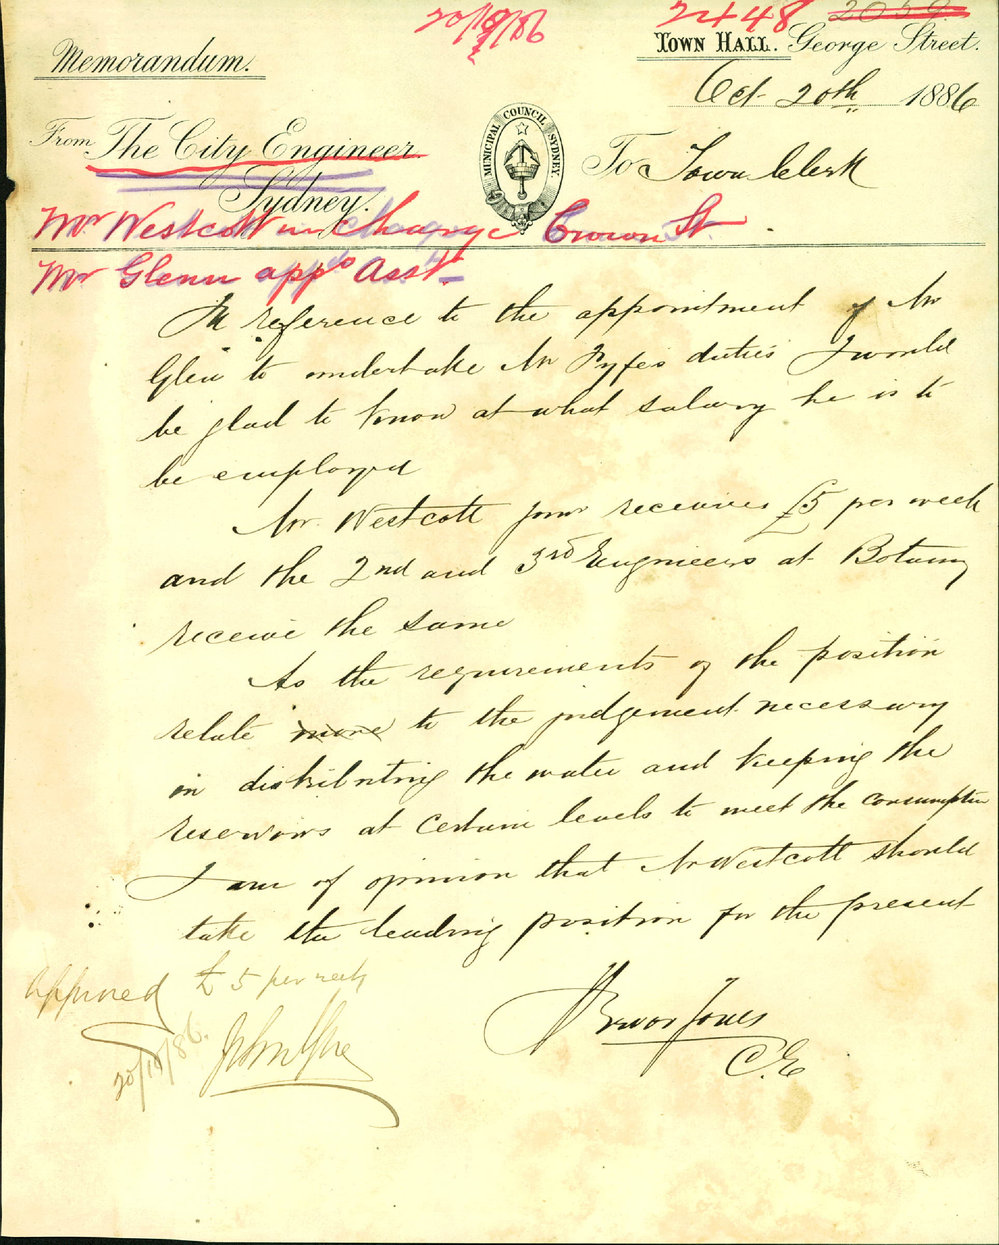 2448 2059
Memorandum.
TOWN HALL. George Street.
Oct 20th 1886
From The City Engineer
MUNICIPAL COUNCIL SYDNEY.
To Town Clerk
Sydney.
Mr Westcott in charge Crown St.
Mr Glenn appd Asst.
In reference to the appointment of Mr
Glen to undertake Mr Fyfes duties I would
be glad to know at what salary he is to
be employed
Mr. Westcott now receives £5 per week
and the 2nd and 3rd Engineers at Botany
receive the same
As the requirements of the position
relate more to the judgement necessary
in distributing the water and keeping the
reservoirs at certain levels to meet the consumption
I am of opinion that Mr Westcott should
take the leading position for the present
Approved £5 per week
20/10/86.
Trevor Jones
C.E